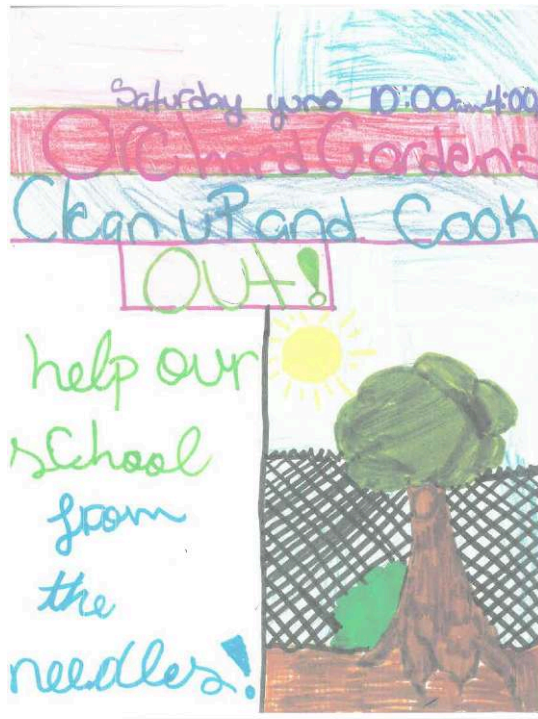 Saturday yune 10:00am 4:00
Orchard Gardens
Clean up and Cook
Out!
help our
school
from
the
needles!